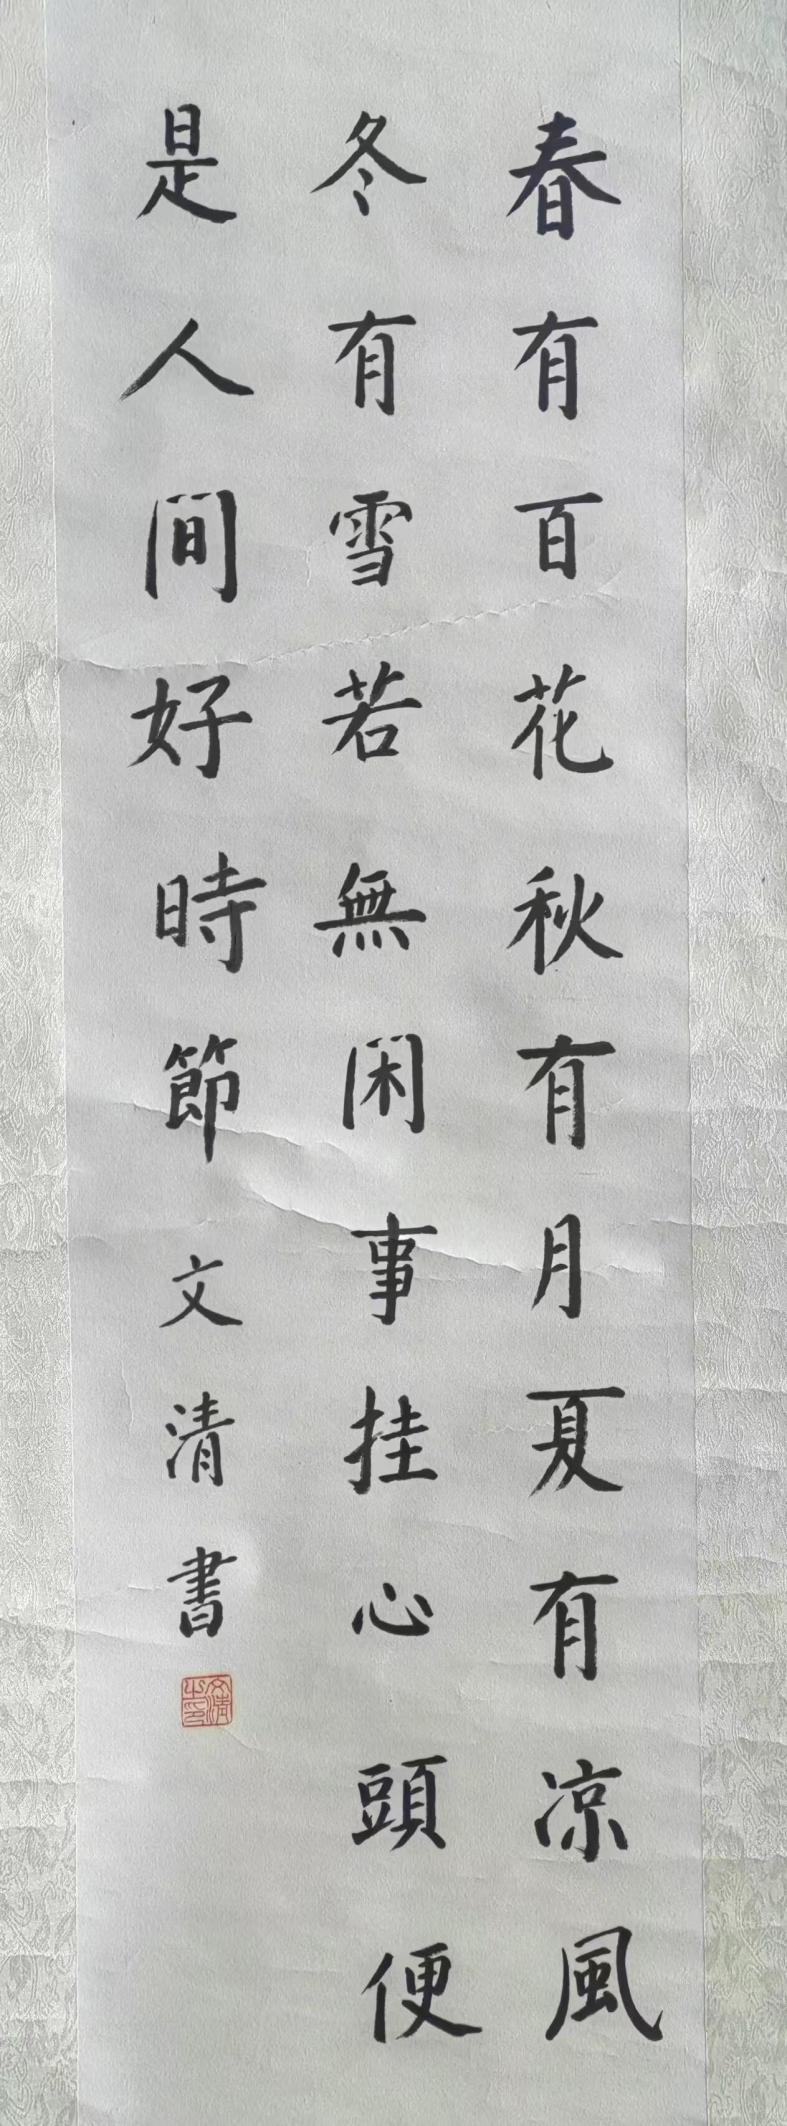 春有百花秋有月夏有凉風
冬有雪若無闲事挂心頭便
是人間好時節 文清書
文清之印